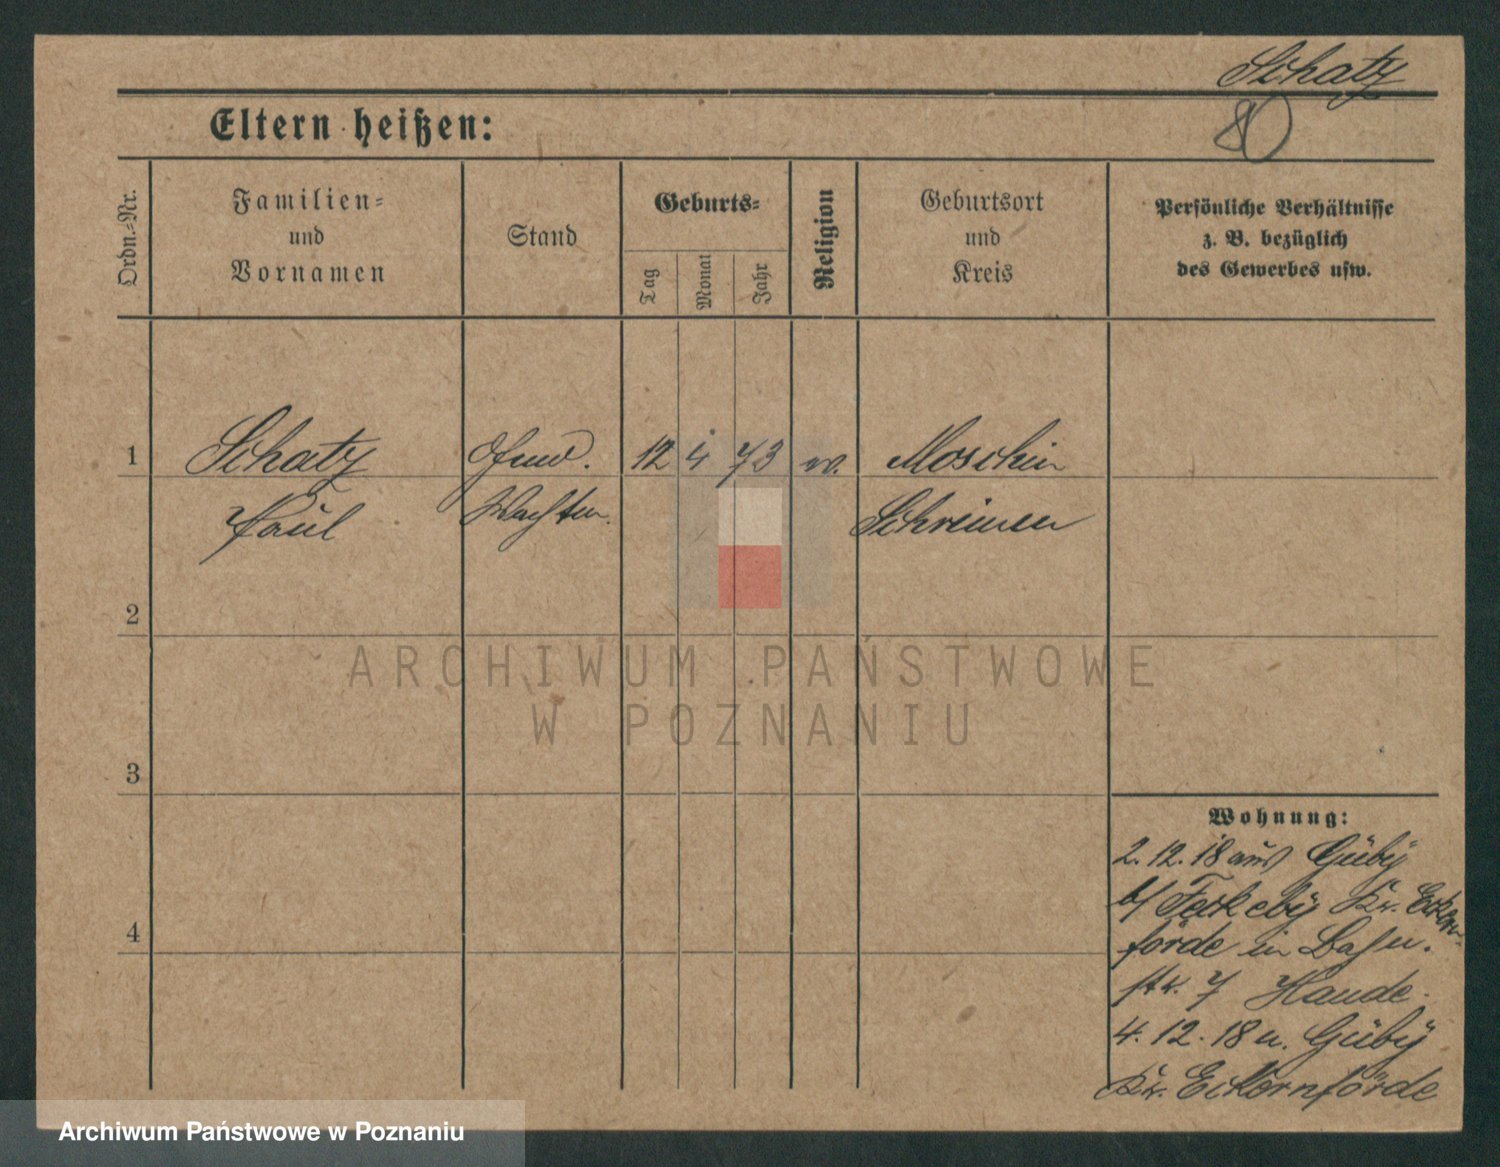 Schatz
80
Eltern heißen:
Ordn.-Nr.
Familien-
und
Vornamen
Stand
Geburts-
Tag
Monat
Jahr
Religion
Geburtsort
und
Kreis
Persönliche Verhältnisse
z. B. bezüglich
des Gewerbes usw.
1 Schatz 12 4 73 Moschin
Paul Schrimm
2
ARCHIWUM PAŃSTWOWE
W POZNANIU
3
4
Wohnung:
2. 12. 18 aus Güby
b/ Kr. Eckern-
förde in Bahn.
str. 7 Haude.
4. 12. 18 n. Güby
Kr. Eckernförde
Archiwum Państwowe w Poznaniu